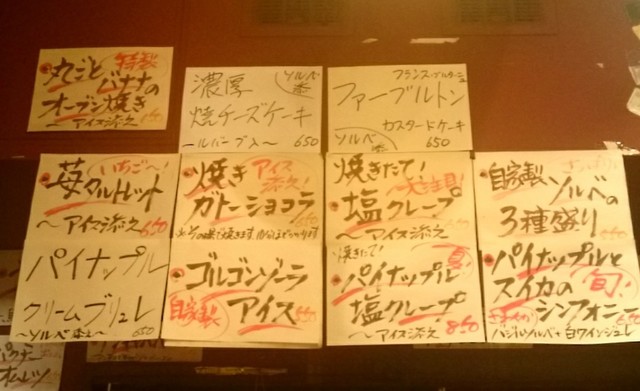 特製
丸ごとバナナの
オーブン焼き
〜アイス添え
濃厚
ソルベ添
焼チーズケーキ
650
フランス・ブルターニュ
ファーブルトン
カスタードケーキ
ソルベ添
650
いちご〜!
苺タルトレット
〜アイス添え 650
焼き
アイス添え!
ガトーショコラ
焼きたて!
大注目!
塩クレープ
〜アイス添え 650
自家製
ソルベの
3種盛り
650
パイナップル
クリームブリュレ
〜ソルベ添え〜 650
ゴルゴンゾーラ
自家製
アイス
焼きたて!
夏!
パイナップルと
塩クレープ
〜アイス添え 860
パイナップルと
スイカの
旬!
シンフォニー
バジルソルベ+白ワインジュレ
オムレツ